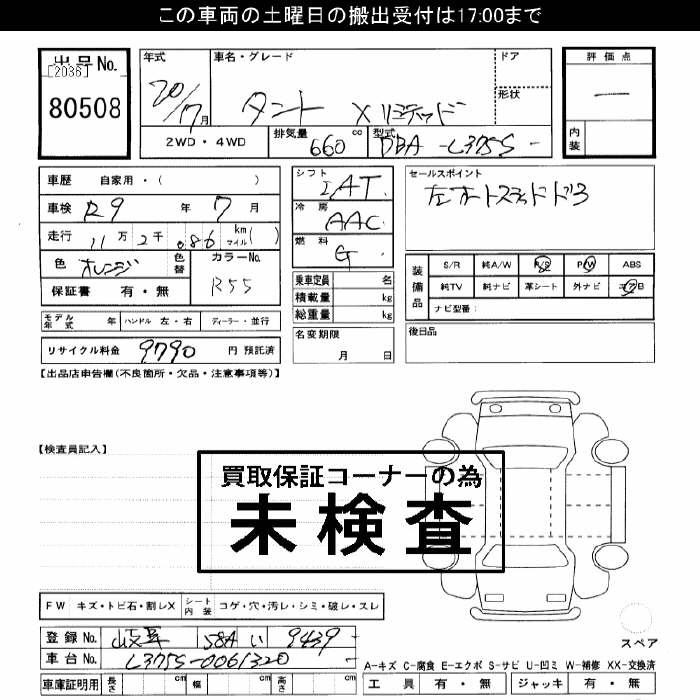 この車両の土曜日の搬出受付は17:00まで
出品No.
[2036]
80508
年式
20/7月
車名・グレード
タント Xリミテッド
ドア
形状
評価点
―
内装
2WD・4WD
排気量 660 cc
型式 DBA-L375S-
車歴 自家用・( )
車検 R9 年 7 月
走行 11万 2千 086 km マイル( )
色 オレンジ
色替
カラーNo.
R55
保証書 有・無
シフト
IAT
冷房
AAC
燃料
G
セールスポイント
左オートスライドドア
乗車定員 名
積載量 kg
総重量 kg
装備品
S/R 純A/W P/S P/W ABS
純TV 純ナビ 革シート 外ナビ エアB
ナビ型番:
モデル年式 年 ハンドル 左・右 ディーラー・並行
名変期限
月 日
後日品
リサイクル料金 9790 円 預託済
【出品店申告欄(不良箇所・欠品・注意事項等)】
【検査員記入】
買取保証コーナーの為
未検査
FW キズ・トビ石・割レX シート内装 コゲ・穴・汚レ・シミ・破レ・スレ
登録No. 岐阜 581 い 9439
車台No. L375S-0061320
スペア
A-キズ C-腐食 E-エクボ S-サビ U-凹ミ W-補修 XX-交換済
車庫証明用 長さ cm 幅 cm 高さ cm
工具 有・無 ジャッキ 有・無